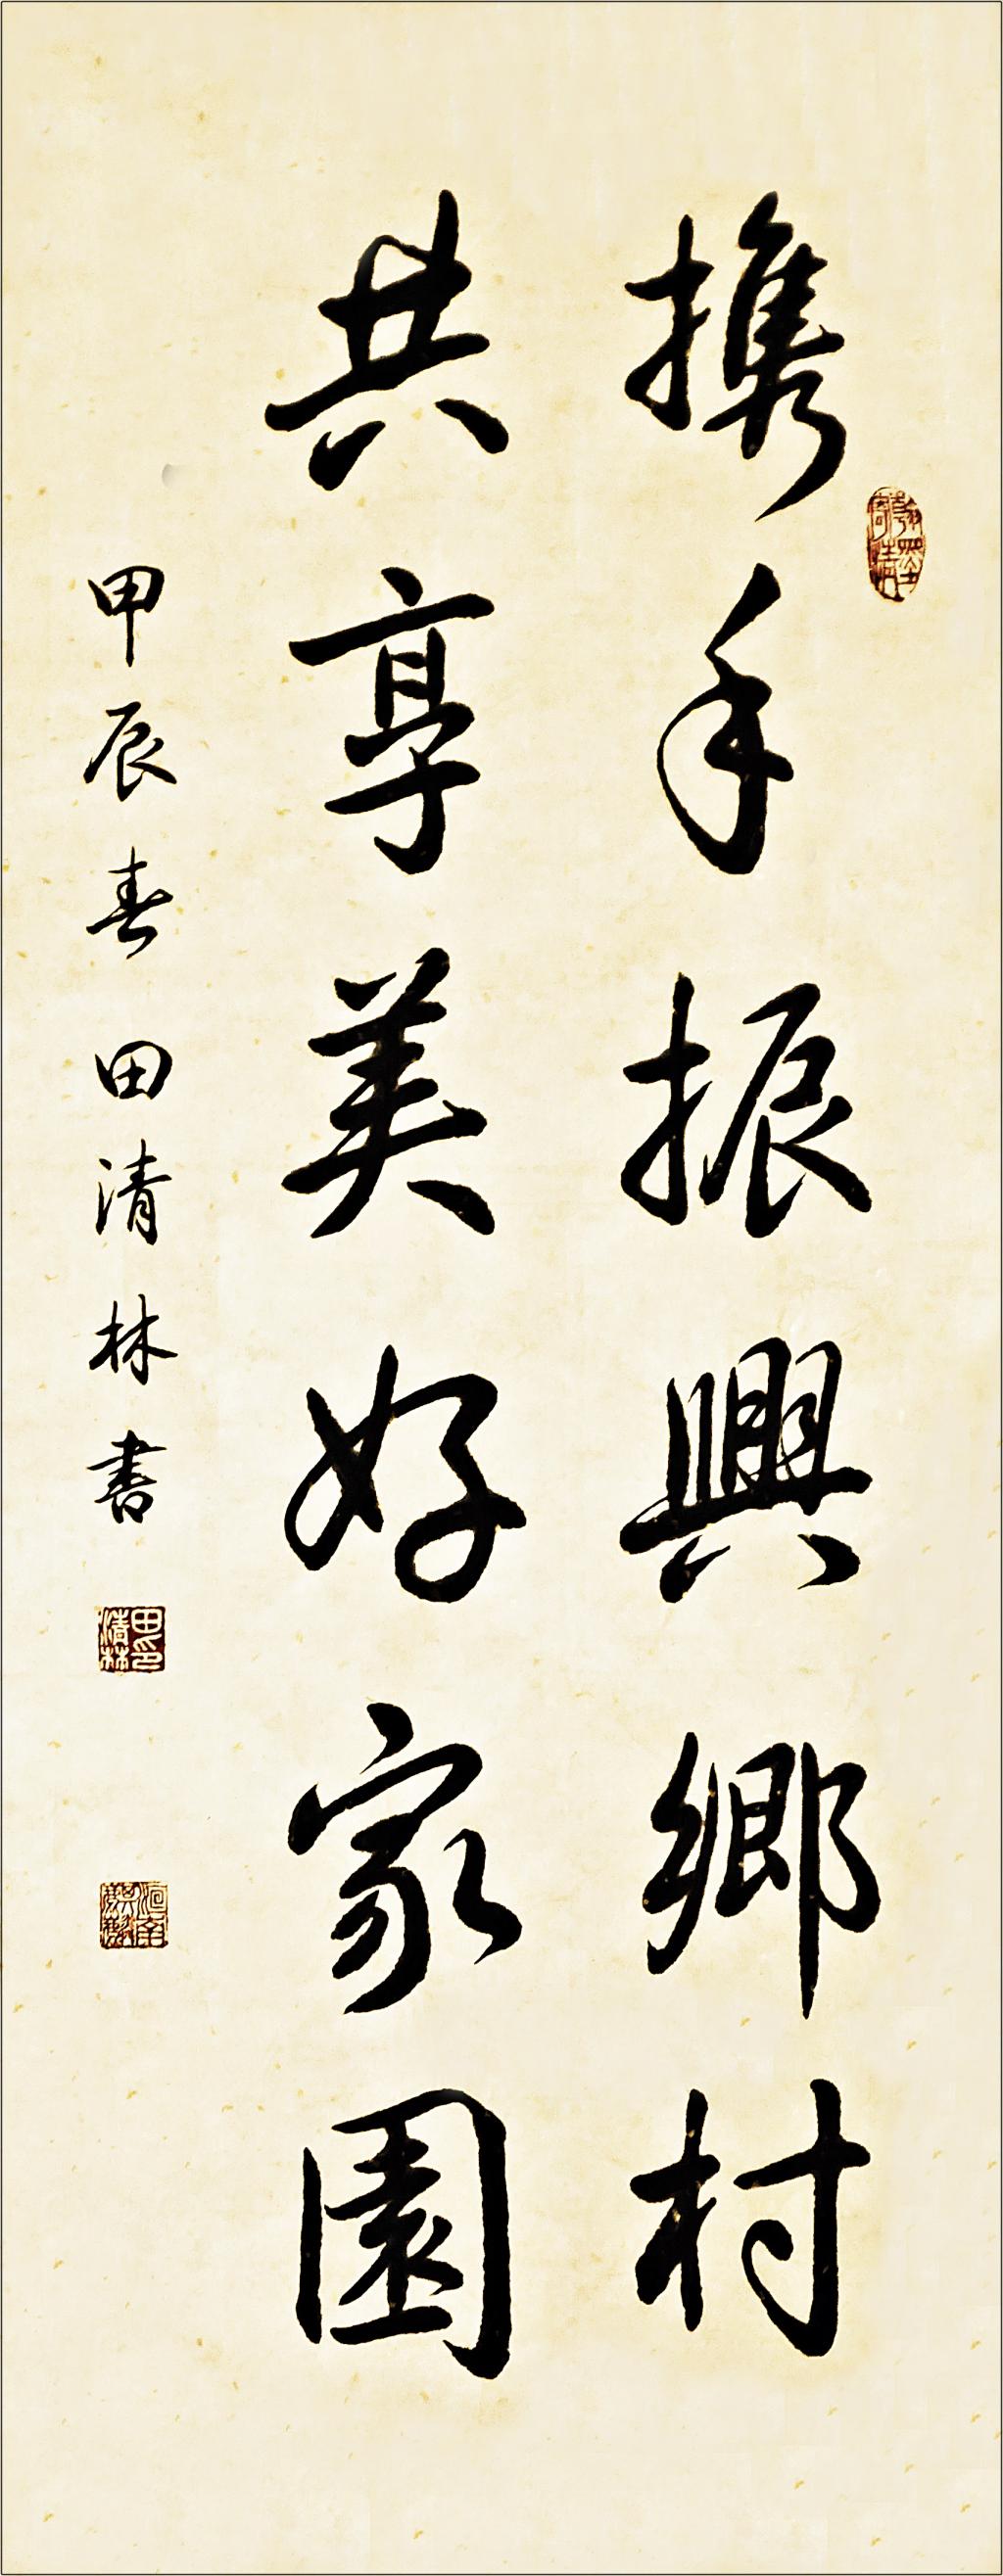 攜手振興鄉村
共享美好家園
甲辰春田清林書
田清林印